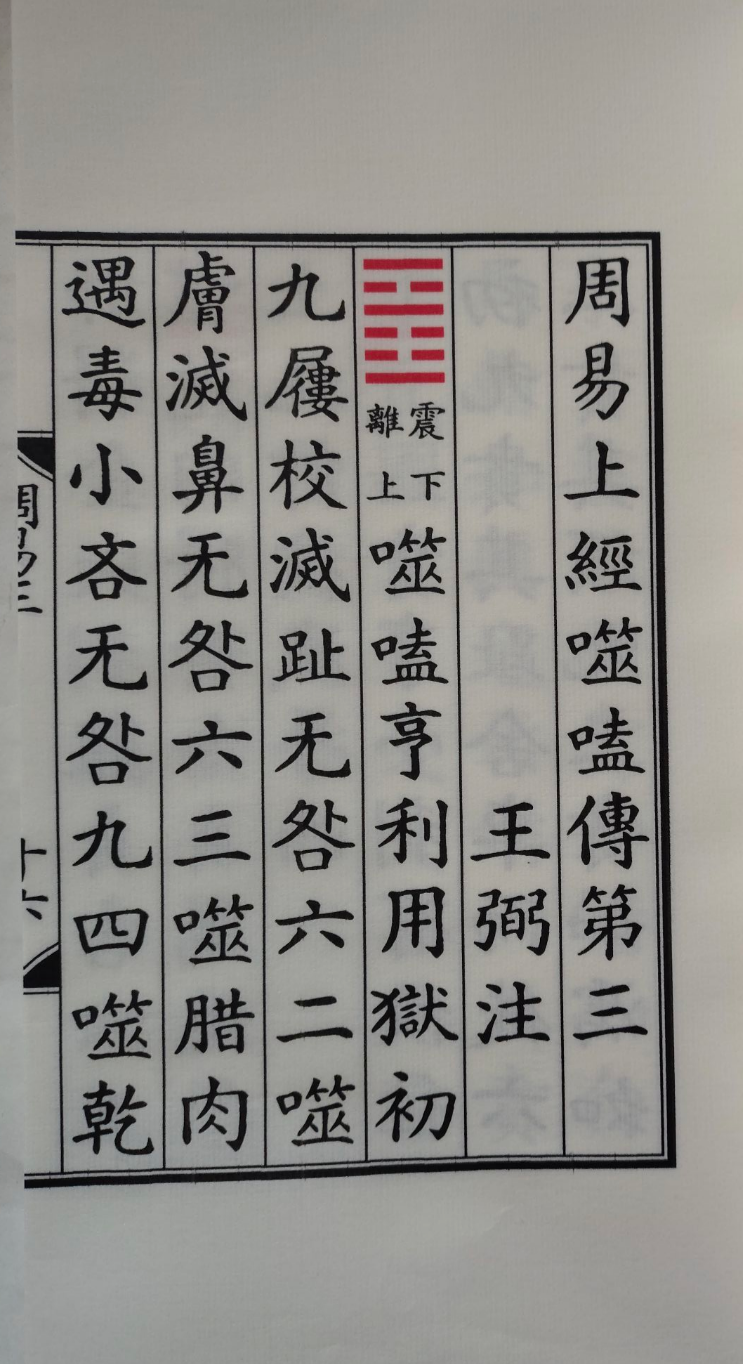 周易上經噬嗑傳第三
王弼注
震下
離上
噬嗑亨利用獄初
九屨校滅趾无咎六二噬
膚滅鼻无咎六三噬腊肉
遇毒小吝无咎九四噬乾
周易三
十六